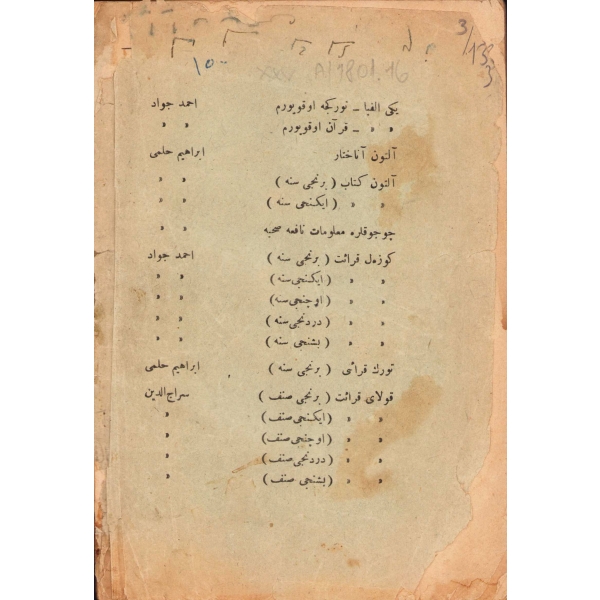 3/133
3
١٠
XXV A/1801.16
یكی الفبا ــ تورکجه اوقویورم احمد جواد
» » ــ قرآن اوقویورم » »
آلتون آناختار ابراهیم حلمی
آلتون كتاب ( برنجی سنه ) » »
» » ( ایكنجی سنه ) » »
چوجوقلره معلومات نافعه صحیه » »
كوزەل قرائت ( برنجی سنه ) احمد جواد
» » ( ایكنجی سنه ) » »
» » ( اوچنجی سنه ) » »
» » ( دردنجی سنه ) » »
» » ( بشنجی سنه ) » »
تورك قرائی ( برنجی سنه ) ابراهیم حلمی
قولای قرائت ( برنجی صنف ) سراج‌الدین
» » ( ایكنجی صنف ) »
» » ( اوچنجی صنف ) »
» » ( دردنجی صنف ) »
» » ( بشنجی صنف ) »